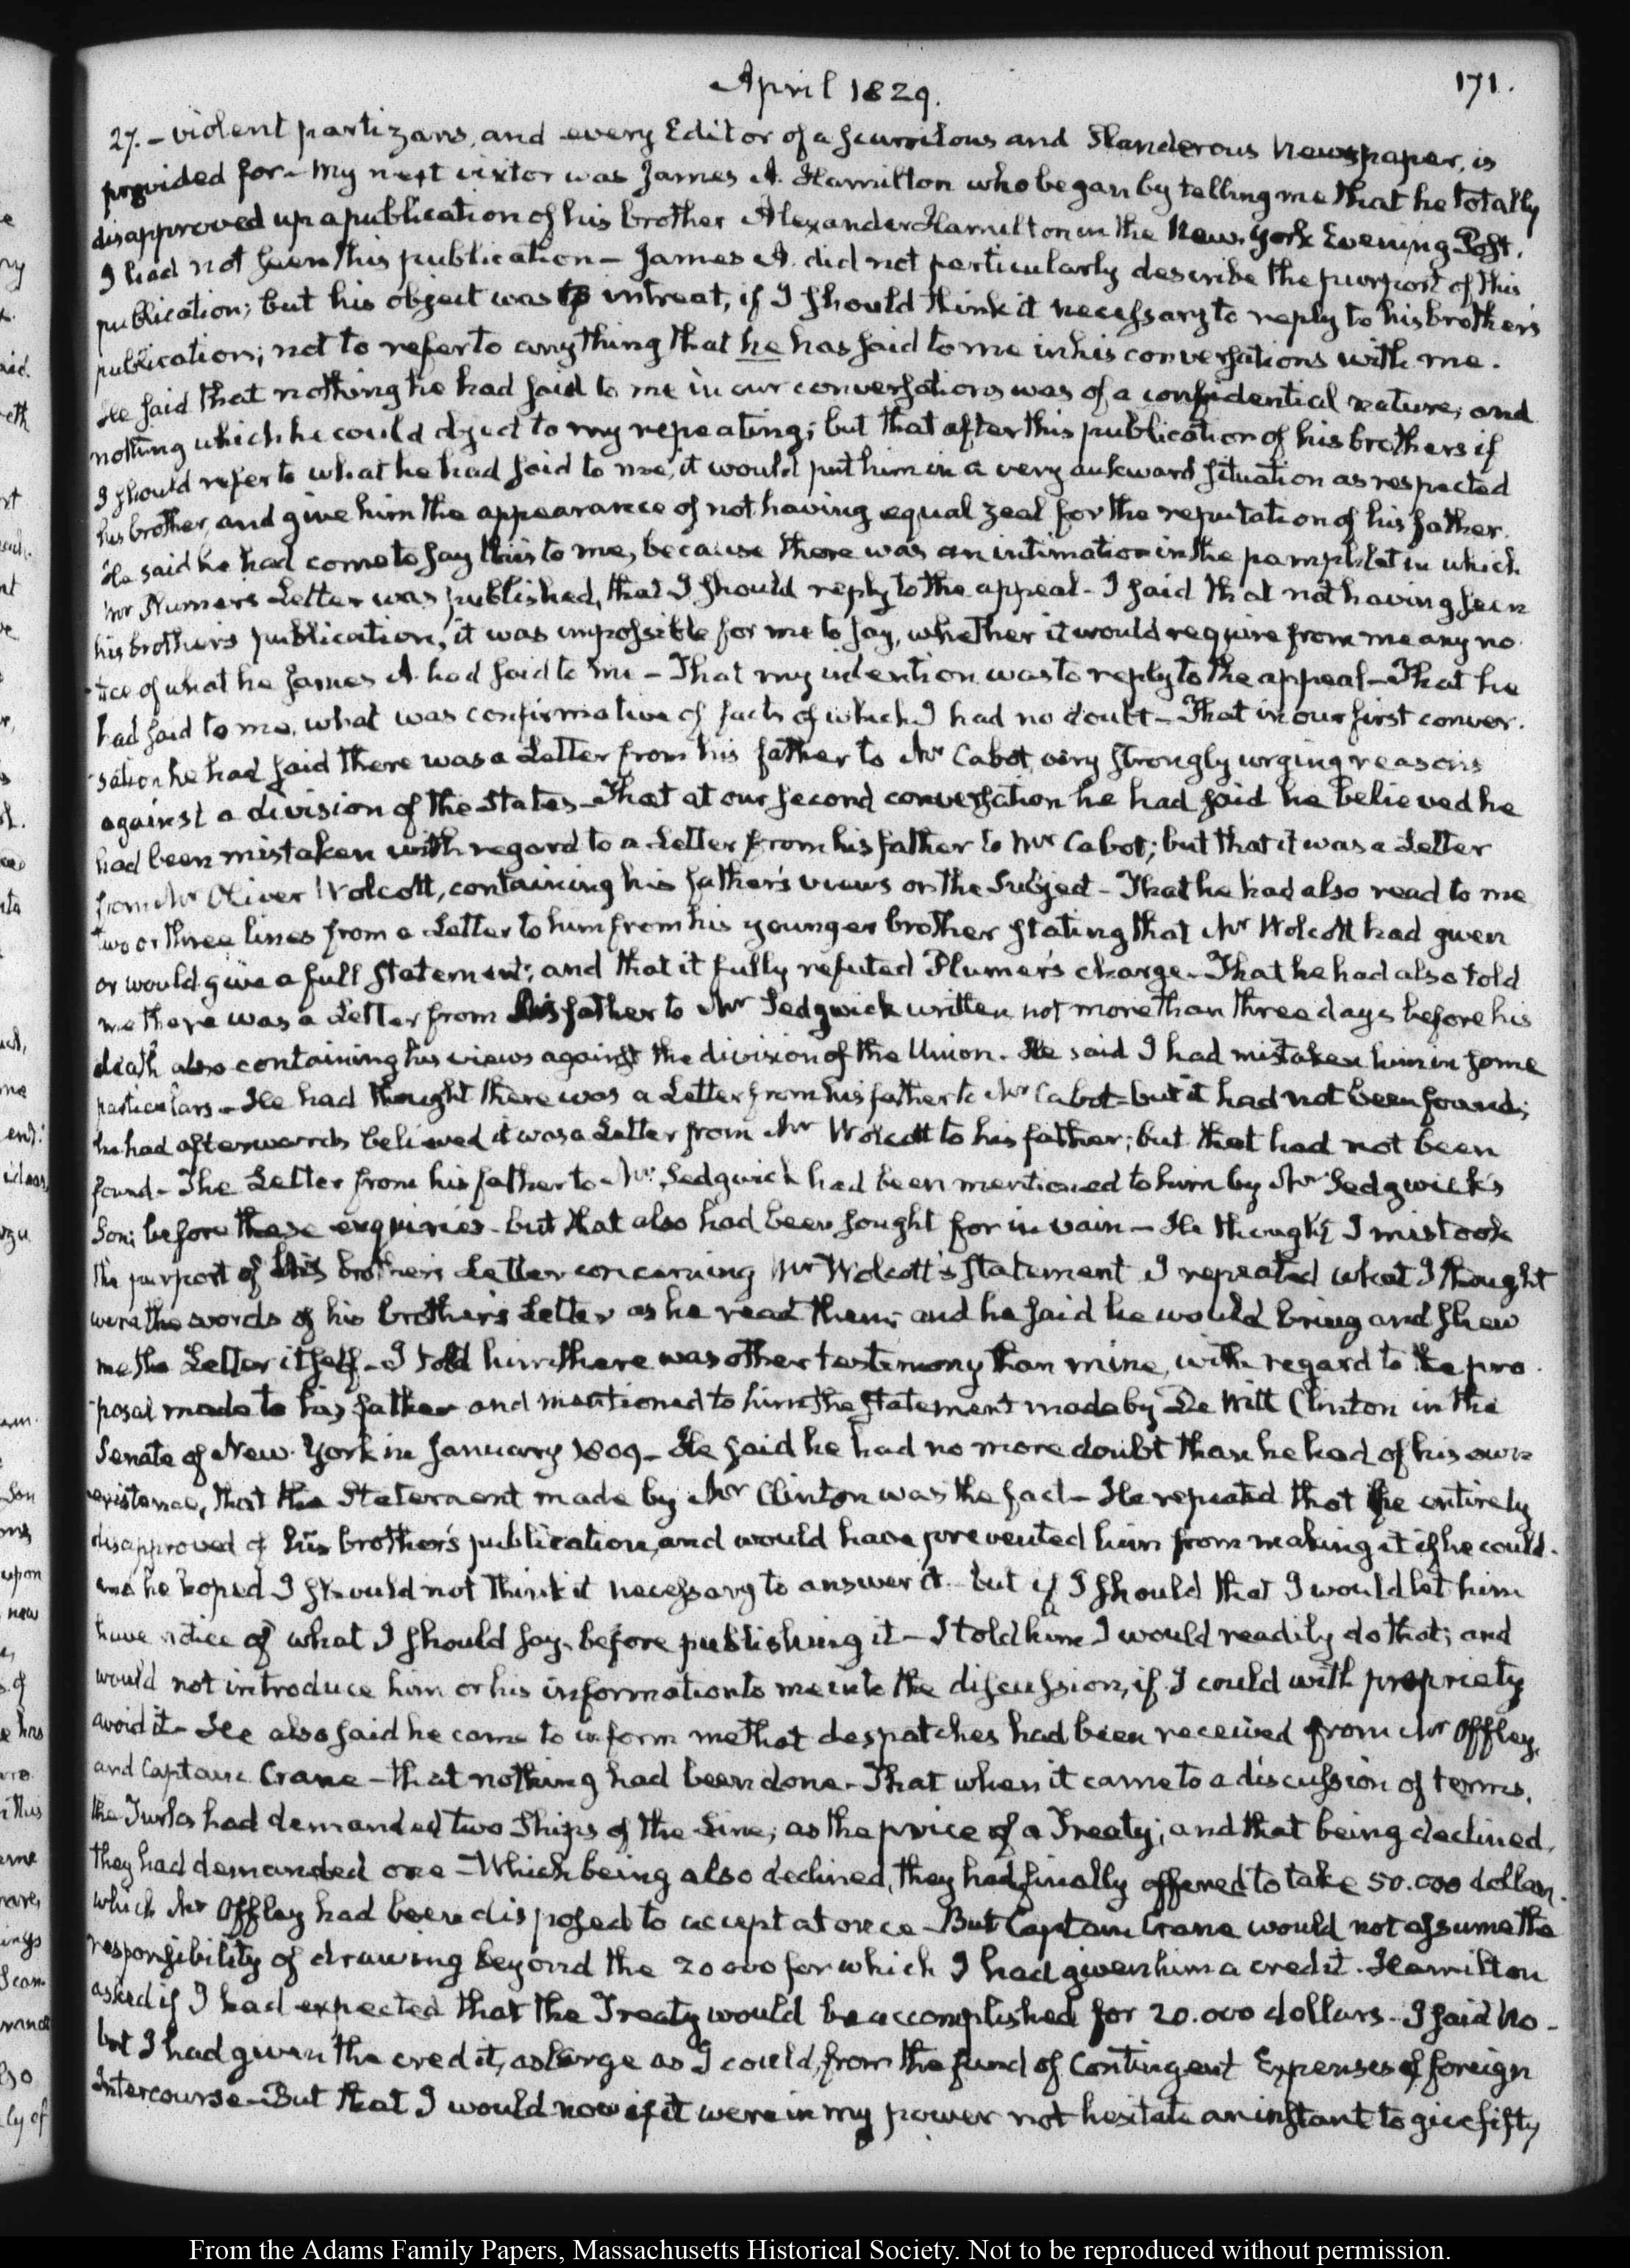 April 1829.
171.
27. - violent partizans, and every Editor of a scurrilous and Slanderous Newspaper, is
provided for - My next visitor was James A. Hamilton who began by telling me that he totally
disapproved up a publication of his brother Alexander Hamilton in the New-York Evening Post.
I had not seen this publication - James A. did not particularly describe the purport of this
publication; but his object was to intreat, if I should think it necessary to reply to his brother's
publication; not to refer to anything that he has said to me in his conversations with me.
He said that nothing he had said to me in our conversations was of a confidential nature; and
nothing which he could object to my repeating; but that after this publication of his brothers if
I should refer to what he had said to me, it would put him in a very aukward situation as respected
his brother, and give him the appearance of not having equal zeal for the reputation of his father.
He said he had come to say this to me, because there was an intimation in the pamphlet in which
Mr Plumer's Letter was published, that I should reply to the appeal - I said that not having seen
his brother's publication, it was impossible for me to say, whether it would require from me any no
-tice of what he James A. had said to me - That my intention was to reply to the appeal - That he
had said to me, what was confirmative of facts of which I had no doubt - That in our first conver.
-sation he had said there was a Letter from his father to Mr Cabot, very strongly urging reasons
against a division of the States - That at our second conversation he had said he believed he
had been mistaken with regard to a Letter from his father to Mr Cabot; but that it was a Letter
from Mr Oliver Wolcott, containing his father's views on the Subject - That he had also read to me
two or three lines from a Letter to him from his younger brother stating that Mr Wolcott had given
or would give a full statement; and that it fully refuted Plumer's charge - That he had also told
me there was a Letter from his father to Mr Sedgwick written not more than three days before his
death also containing his views against the division of the Union. He said I had mistaken him in some
particulars - He had thought there was a Letter from his father to Mr Cabot - but it had not been found;
he had afterwards believed it was a Letter from Mr Wolcott to his father; but that had not been
found - The Letter from his father to Mr Sedgwick had been mentioned to him by Mr Sedgwick's
Son; before these enquiries - but that also had been sought for in vain - He thought I mistook
the purport of his brother's Letter concerning Mr Wolcott's statement I repeated what I thought
were the words of his brother's Letter as he read them; and he said he would bring and shew
me the Letter itself - I told him there was other testimony than mine, with regard to the pro
-posal made to his father and mentioned to him the statement made by De Witt Clinton in the
Senate of New-York in January 1809 - He said he had no more doubt than he had of his own
existence, that the Statement made by Mr Clinton was the fact - He repeated that he entirely
disapproved of his brother's publication, and would have prevented him from making it if he could.
and he hoped I should not think it necessary to answer it - but if I should that I would let him
have notice of what I should say, before publishing it - I told him I would readily do that; and
would not introduce him or his information to me into the discussion, if I could with propriety
avoid it - He also said he came to inform me that despatches had been received from Mr Offley,
and Captain Crane - that nothing had been done - That when it came to a discussion of terms,
the Turks had demanded two Ships of the Line; as the price of a Treaty; and that being declined,
they had demanded one - Which being also declined, they had finally offered to take 50.000 dollars.
which Mr Offley had been disposed to accept at once - But Captain Crane would not assume the
responsibility of drawing beyond the 20 000 for which I had given him a credit. Hamilton
asked if I had expected that the Treaty would be accomplished for 20.000 dollars - I said No -
but I had given the credit, as large as I could, from the fund of Contingent Expenses of foreign
Intercourse - But that I would now if it were in my power not hesitate an instant to give fifty
From the Adams Family Papers, Massachusetts Historical Society. Not to be reproduced without permission.